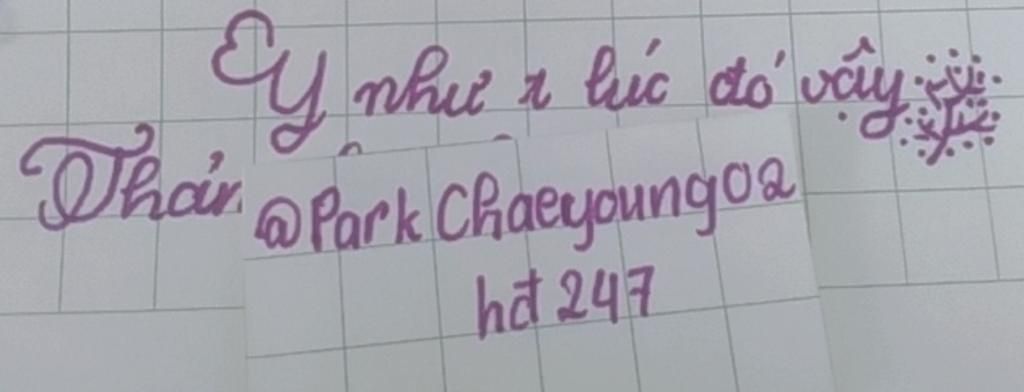 Y như 1 lúc đó vậy
Thán
@ParkChaeyoung02
hđ247